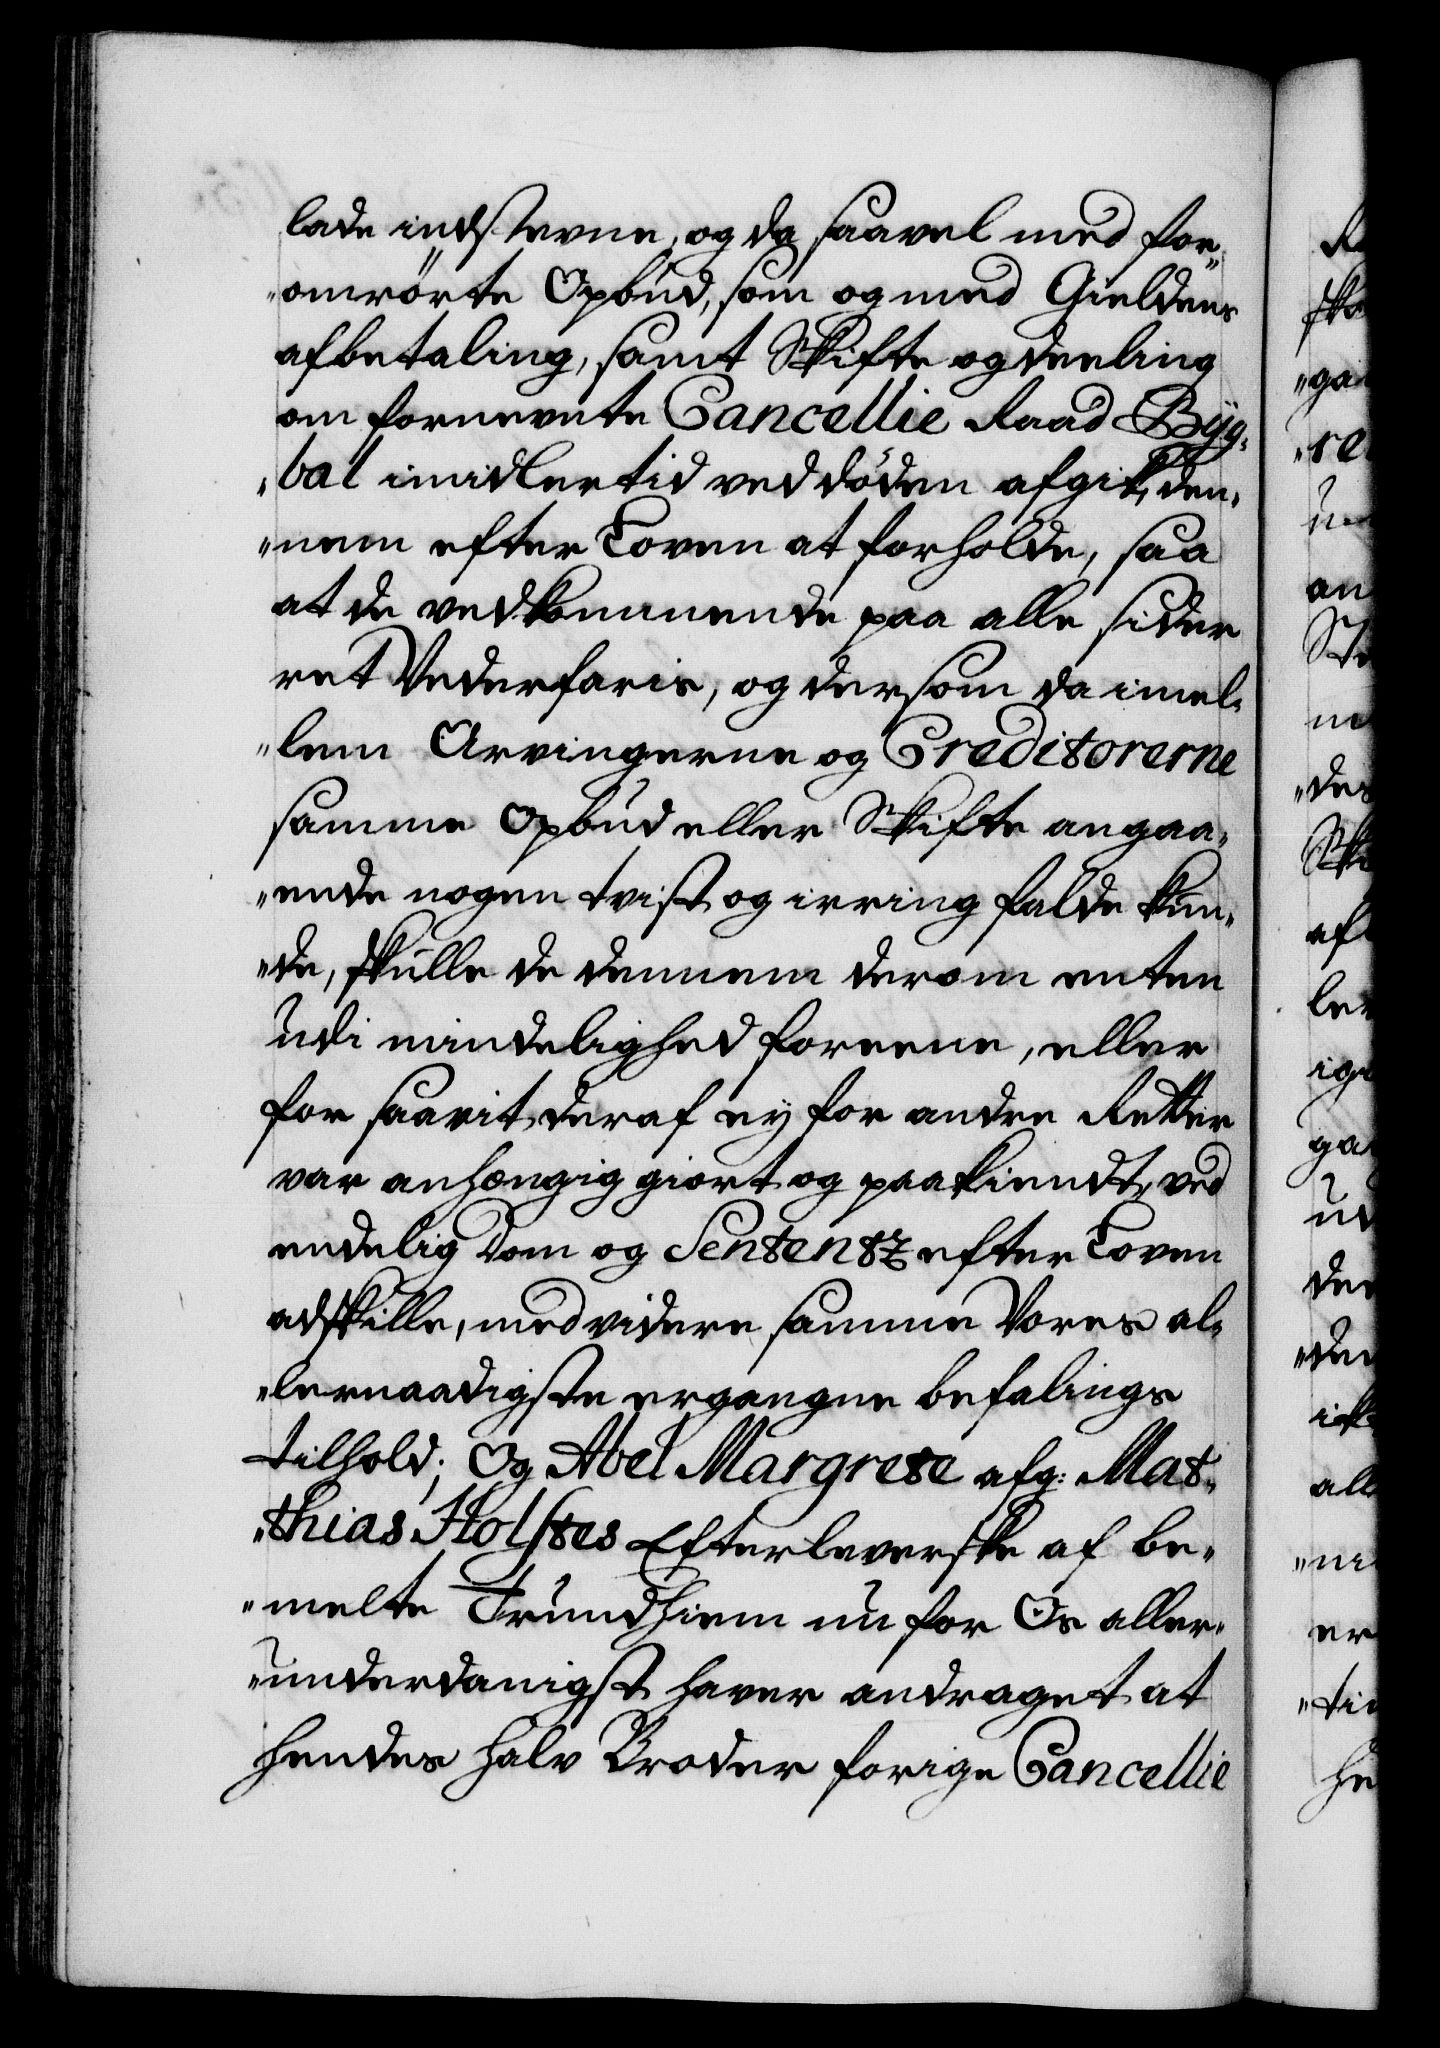 lade indstevne, og da saavel med for„
„omrörte Opbud, som og med Gieldens
afbetaling, samt Skifte og deeling
om fornevnte Cancellie Raad Byg„
„bal imidlertid ved döden afgik, den„
„nem efter Loven at forholde, saa
at de vedkommende paa alle sider
ret Vederfaris, og dersom da imel„
„lem Arvingerne og Creditorerne
samme Opbud eller Skifte angaa„
„ende nogen tvist og irring falde kun„
„de, skulle de dennem derom enten
udi mindelighed foreene, eller
for saavit deraf ey for andre Retter
var anhængig giort og paakiendt, ved
endelig dom og Sententz efter Loven
adskille, med videre samme Vores al„
„lernaadigste ergangne befalings
tilhold; Og Abel Margrete afg: Mat„
„thias Holstes Efterleverske af be„
„melte Trundhiem nu for Os aller„
„underdanigst haver andraget at
hendes halv Broder forige Cancellie